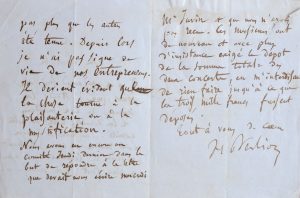 pas plus que les autres
été tenue. Depuis lors
je n'ai pas signe de
vie de nos entrepreneurs.
Il devient évident que
la chose tourne à la
plaisanterie ou à la
mystification.
Nous avons eu encore un
comité Jeudi dernier dans le
but de répondre à la lettre
que devait nous écrire mercredi
Mr Turin et que nous n'avons
pas reçue. les musiciens ont
de nouveau et avec plus
d'insistance exigé le dépôt
de la somme totale des
deux concerts, en m'interdisant
de rien faire jusqu'à ce que
les trois mille francs fussent
déposés.
tout à vous de cœur
H Berlioz